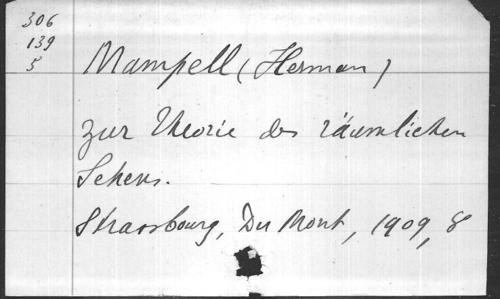 306
139
5
Mampell (Herman)
Zur Theorie des räumlichen
Sehens.
Strassbourg, Du Mont, 1909, 8